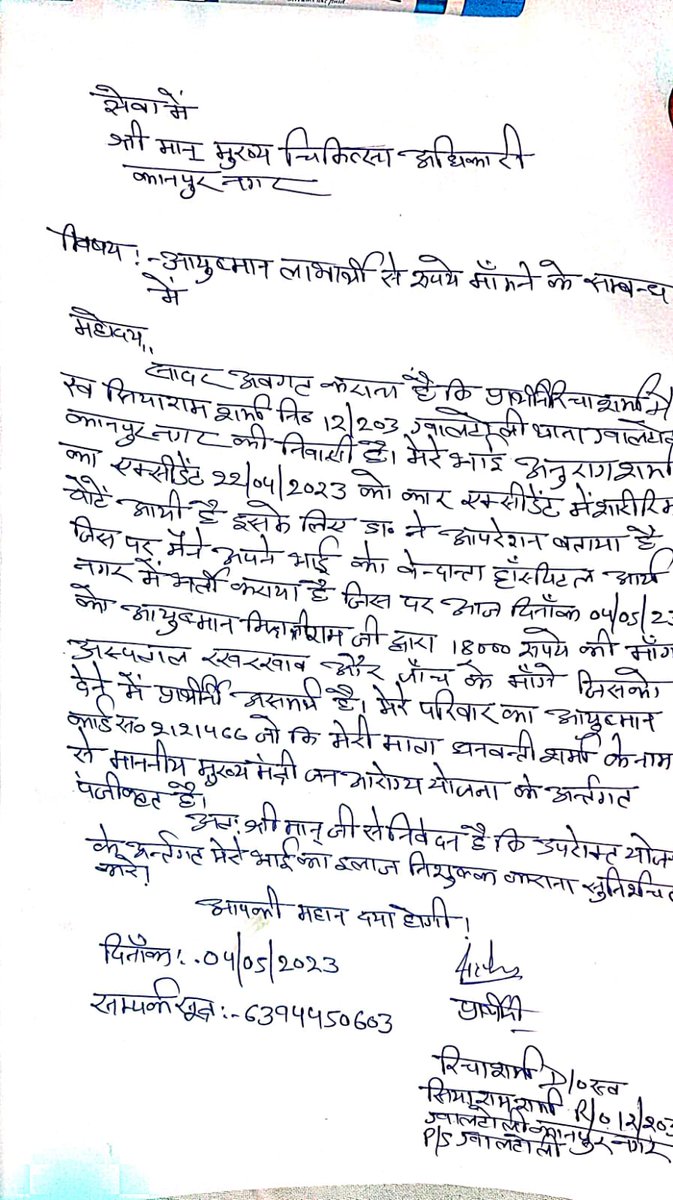 सेवा में
श्री मान् मुख्य चिकित्सा अधिकारी
कानपुर नगर
विषय :- आयुष्मान लाभार्थी से रुपये माँगने के सम्बन्ध
में
महोदय,,
सादर अवगट कराना है कि प्रार्थिनी रिचा शर्मा
स्व सियाराम शर्मा नि० 12/203 ग्वालटोली थाना ग्वालटो
कानपुर नगर की निवासी है। मेरे भाई अनुराग शर्मा
का एक्सीडेंट 22/04/2023 को कार एक्सीडेंट में शारीरि
चोटें आयी है इसके लिए डा० ने आपरेशन बताया है
जिस पर मैंने अपने भाई को वेन्दान्ता हॉस्पिटल आर्य
नगर में भर्ती कराया है जिस पर आज दिनाँक 04/05/23
को आयुष्मान जी द्वारा 18000 रुपये की माँग
अस्पताल रखरखाव और जाँच के माँगे जिसको
देने में प्रार्थिनी असमर्थ है। मेरे परिवार का आयुष्मान
कार्ड स० 2121466 जो कि मेरी माता धनवन्ती शर्मा के नाम
से माननीय मुख्य मंत्री जन आरोग्य योजना के अर्न्तगत
पंजीकृत है।
अतः श्री मान् जी से निवेदन है कि उपरोक्त योज
के अर्न्तगत मेरे भाई का इलाज निशुल्क कराना सुनिश्चित
करे।
आपकी महान दया होगी।
दिनाँक :. 04/05/2023
सम्पर्क सूत्र :- 6394450603
प्रार्थिनी
रिचा शर्मा D/o स्व
सियाराम शर्मा R/o 12/203
ग्वालटोली कानपुर नगर
P/S ग्वालटोली